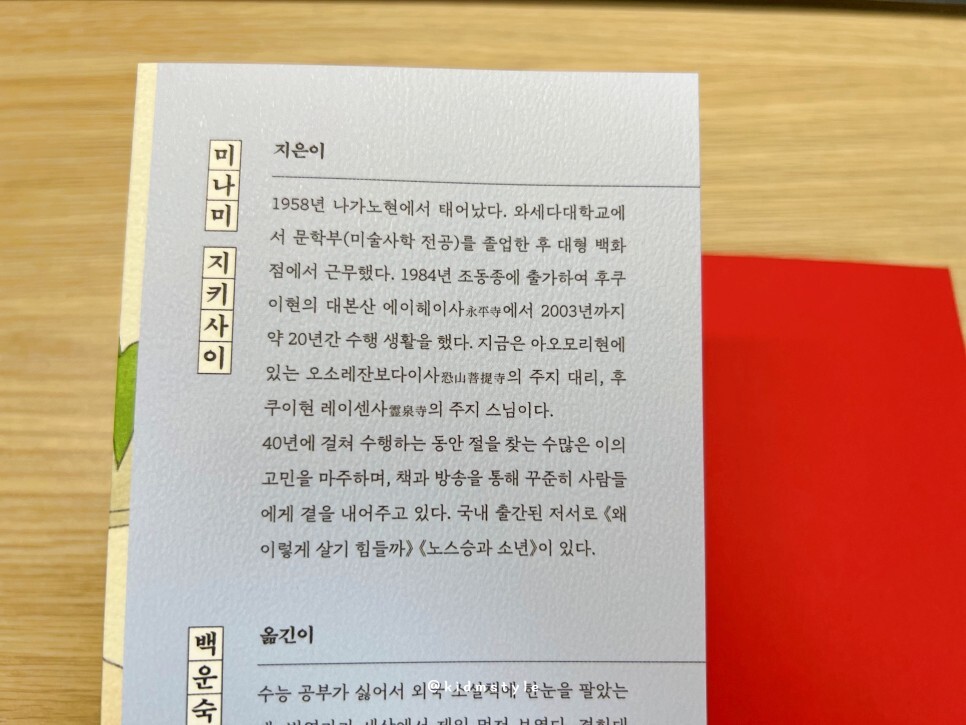 미나미 지키사이
지은이
1958년 나가노현에서 태어났다. 와세다대학교에
서 문학부(미술사학 전공)를 졸업한 후 대형 백화
점에서 근무했다. 1984년 조동종에 출가하여 후쿠
이현의 대본산 에이헤이사永平寺에서 2003년까지
약 20년간 수행 생활을 했다. 지금은 아오모리현에
있는 오소레잔보다이사恐山菩提寺의 주지 대리, 후
쿠이현 레이센사霊泉寺의 주지 스님이다.
40년에 걸쳐 수행하는 동안 절을 찾는 수많은 이의
고민을 마주하며, 책과 방송을 통해 꾸준히 사람들
에게 곁을 내어주고 있다. 국내 출간된 저서로 《왜
이렇게 살기 힘들까》 《노스승과 소년》이 있다.
백운숙
옮긴이
수능 공부가 싫어서 외국 소설책에 한눈을 팔았는